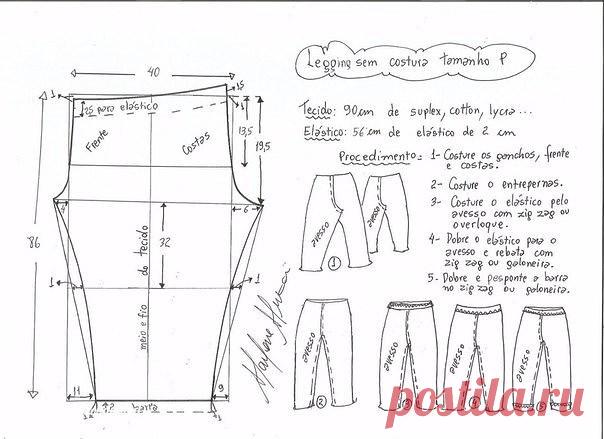 Legging sem costura tamanho P
40
1
1,5
2,5 para elástico
1
Frente
Costas
13,5
19,5
4
6
86
32
meio e fio do tecido
1
1
11
9
2
barra
Tecido: 90cm de suplex, cotton, lycra...
Elástico: 56 cm de elástico de 2 cm
Procedimento: 1- Costure os ganchos, frente
e costas.
2- Costure o entrepernas.
3- Costure o elástico pelo
avesso com zig zag ou
overloque.
4- Dobre o elástico para o
avesso e rebata com
zig zag ou galoneira.
5- Dobre e desponte a barra
no zig zag ou galoneira.
avesso
avesso
1
avesso
2
avesso
3
avesso
4
avesso
5
postila.ru